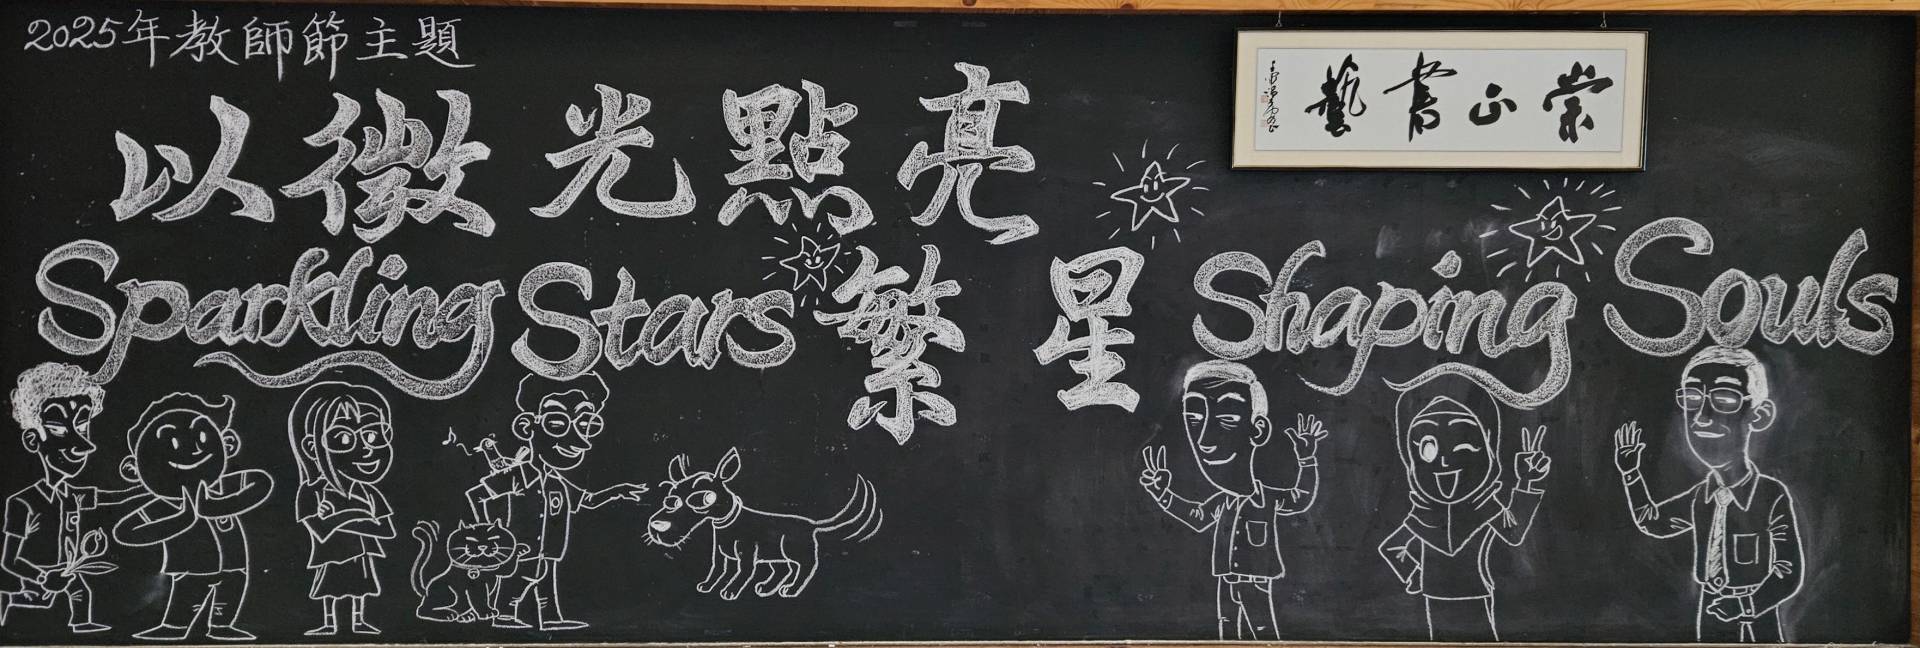 2025年教師節主題
以微光點亮
繁星
Sparkling Stars
Shaping Souls
崇正書藝